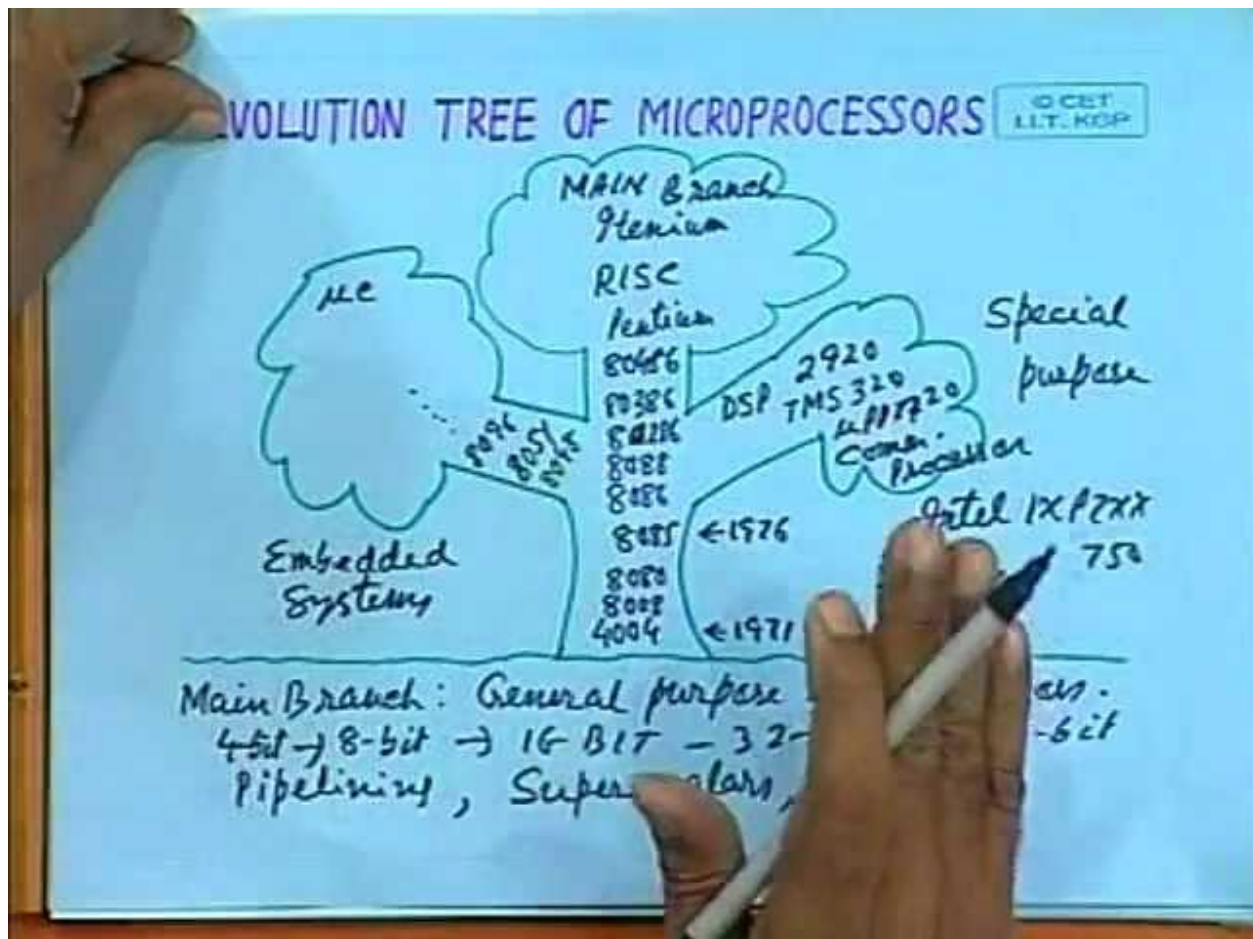 EVOLUTION TREE OF MICROPROCESSORS
© CET
I.I.T. KGP
MAIN Branch
Itenium
RISC
Pentium
80486
80386
80286
8088
8086
8085 ←1976
8080
8008
4004 ←1971
μc
8096
8051
8045
Embedded
Systems
DSP 2920
TMS 320
Comm.
Processor
Special
purpose
Intel IXP7XX
750
Main Branch: General purpose
4-bit → 8-bit → 16 BIT – 32- -bit
Pipelining, Super